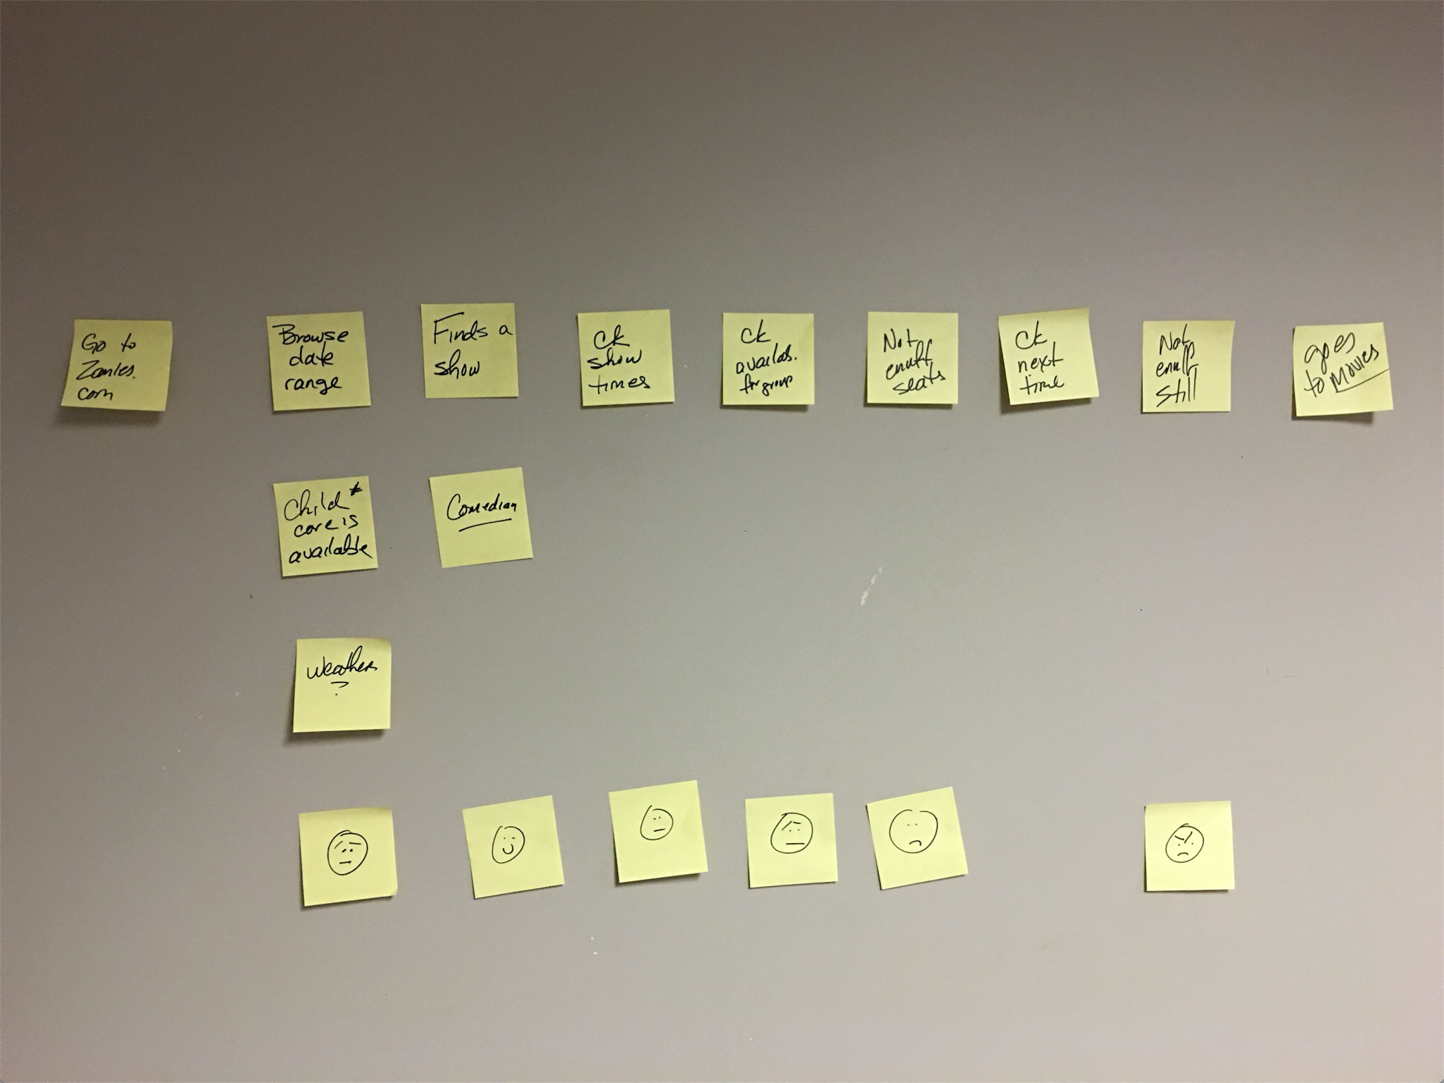 Go to
Zanies.
com
Browse
date
range
Finds a
show
Ck
show
times
Ck
availab.
for group
Not
enuff
seats
Ck
next
time
Not
enuff
still
goes
to Movies
Child*
care is
available
Comedian
Weather
?